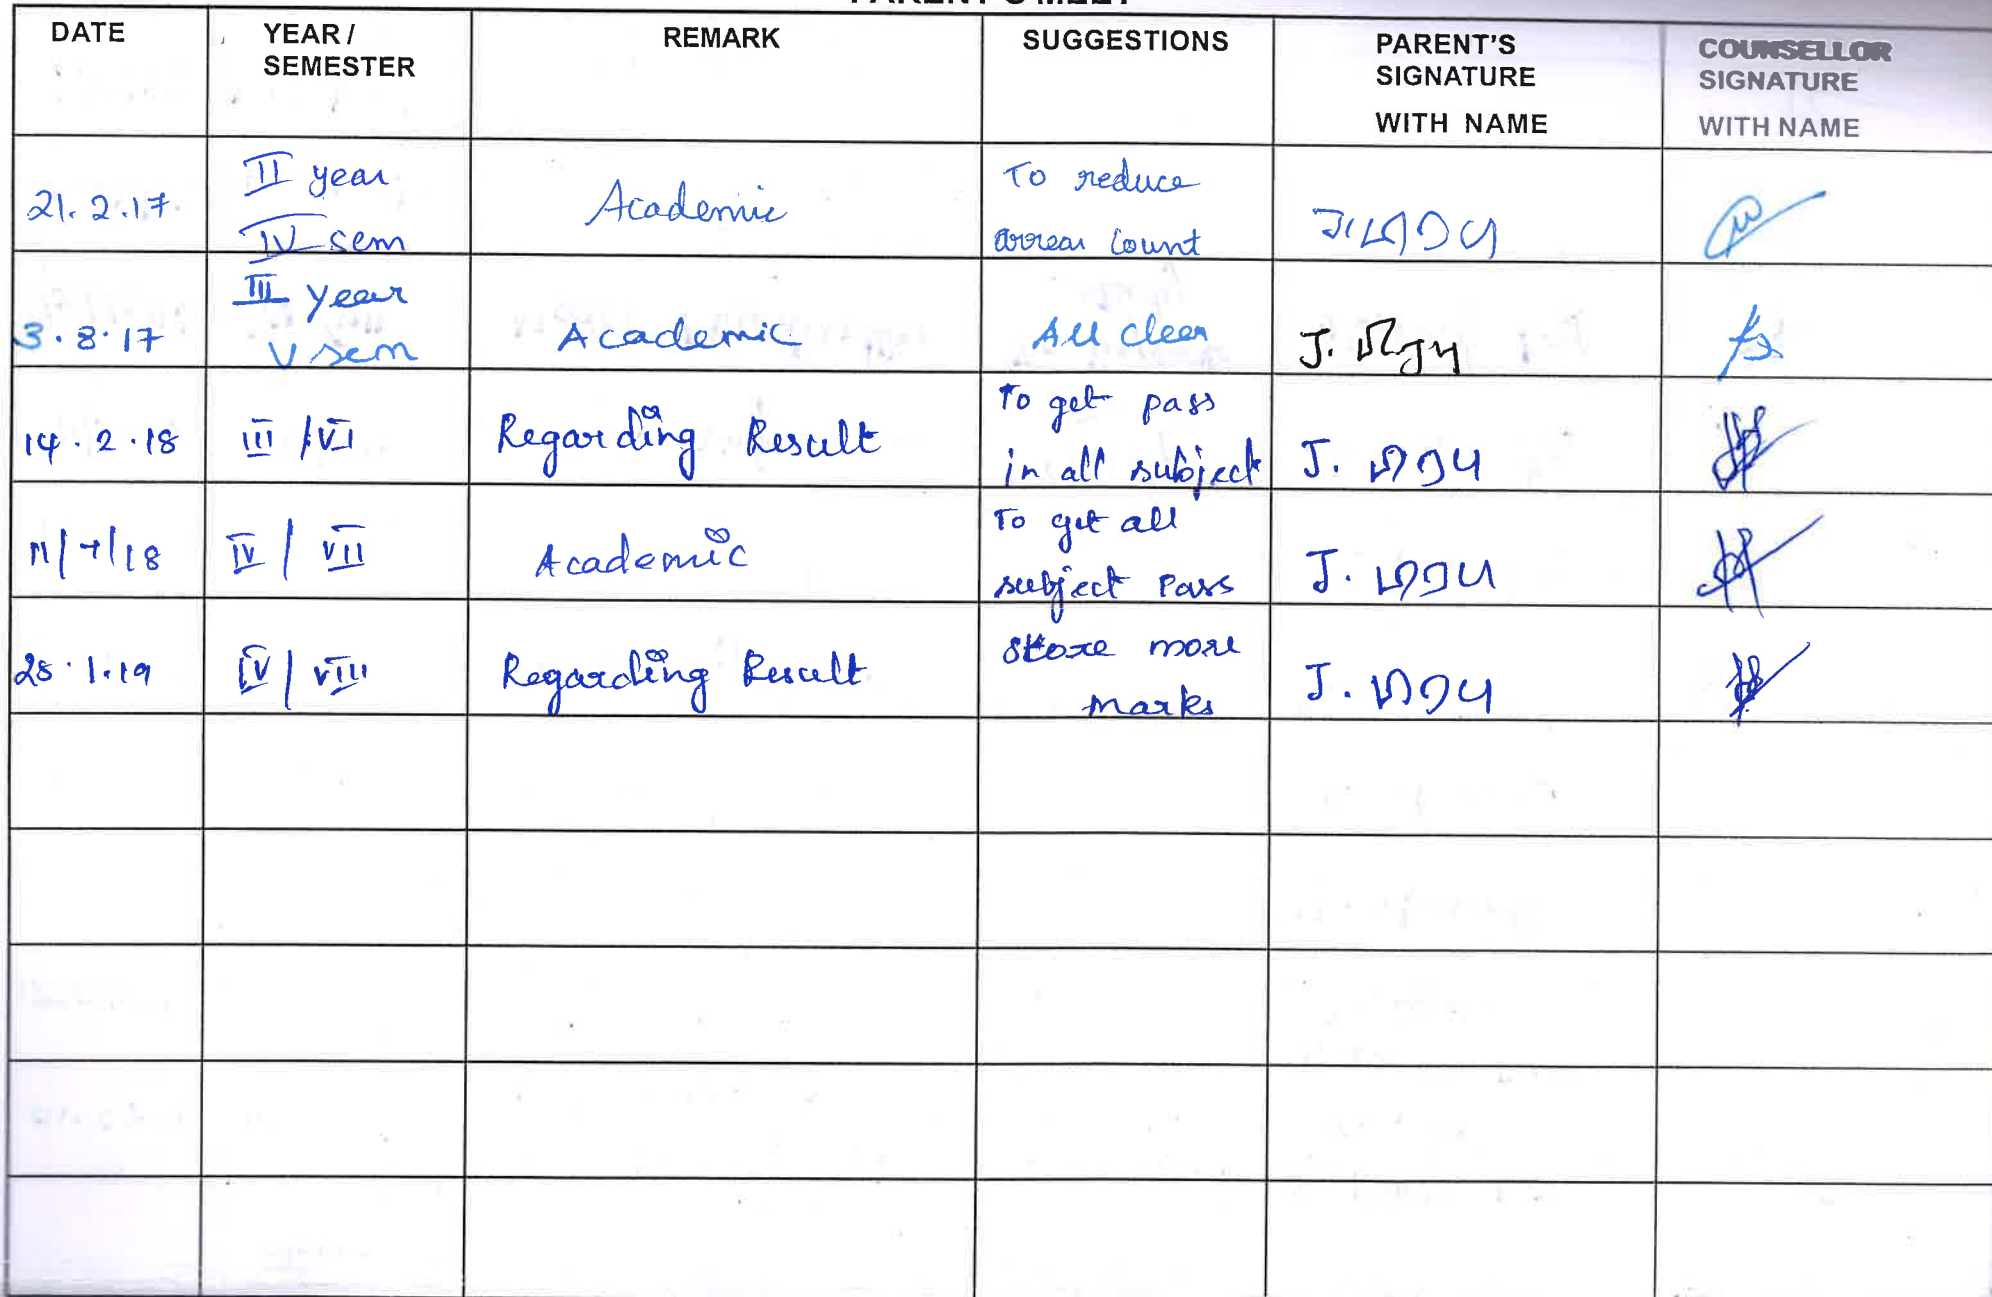 PARENT'S MEET
DATE YEAR / SEMESTER REMARK SUGGESTIONS PARENT'S SIGNATURE WITH NAME COUNSELLOR SIGNATURE WITH NAME
21.2.17 II year IV sem Academic To reduce arrear count
3.8.17 III year V sem Academic All clear J.
14.2.18 III / VI Regarding Result To get pass in all subject J.
11/7/18 IV / VII Academic To get all subject Pass J.
28.1.19 IV / VIII Regarding Result score more marks J.